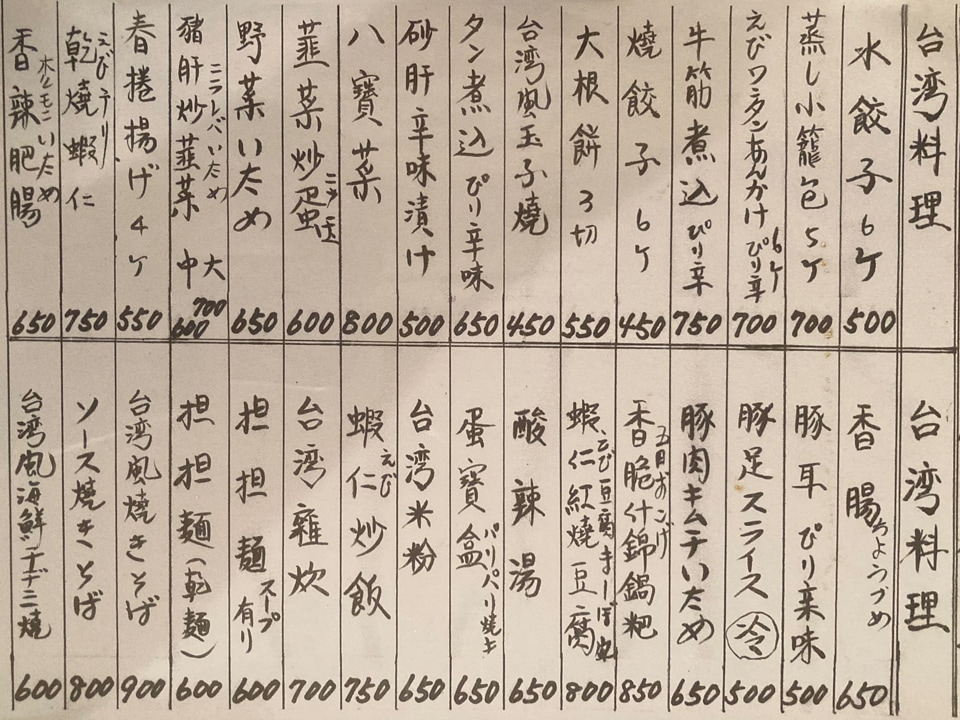 台湾料理
水餃子 6ケ 500
蒸し小籠包 5ケ 700
えびワンタンあんかけ ぴり辛 6ケ 700
牛筋煮込 ぴり辛 750
焼餃子 6ケ 450
大根餅 3切 550
台湾風玉子焼 450
タン煮込 ぴり辛味 650
砂肝辛味漬け 500
八寶菜 800
韮菜炒蛋 ニラ玉 600
野菜いため 650
猪肝炒韮菜 ニラレバいため 大 700 中 600
春捲揚げ 4ケ 550
乾焼蝦仁 えびチリ 750
香辣肥腸 ホルモンいため 650
台湾料理
香腸 ちょうづめ 650
豚耳 ぴり辛味 500
豚足スライス 冷 500
豚肉キムチいため 650
香脆什錦鍋粑 五目おこげ 850
蝦仁紅焼豆腐 800
酸辣湯 650
蛋寶盒 650
台湾米粉 650
蝦仁炒飯 えび 750
台湾雑炊 700
担担麺 スープ有り 600
担担麺(乾麺) 600
台湾風焼きそば 900
ソース焼きそば 800
台湾風海鮮チヂミ焼 600